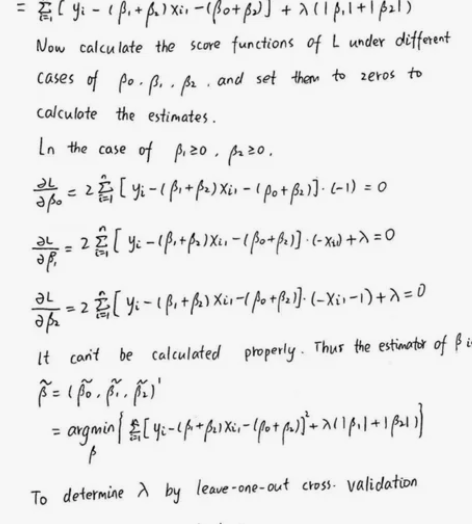 = Σ_{i=1}^{n} [ yi - (β1+β2) xi1 - (β0+β2) ] + λ ( |β1| + |β2| )
Now calculate the score functions of L under different
cases of β0 . β1 . β2 . and set them to zeros to
calculate the estimates .
In the case of β1≥0 . β2≥0 .
∂L/∂β0 = 2 Σ_{i=1}^{n} [ yi - (β1+β2) xi1 - (β0+β2) ] · (-1) = 0
∂L/∂β1 = 2 Σ_{i=1}^{n} [ yi - (β1+β2) xi1 - (β0+β2) ] · (-xi1) + λ = 0
∂L/∂β2 = 2 Σ_{i=1}^{n} [ yi - (β1+β2) xi1 - (β0+β2) ] · (-xi1 - 1) + λ = 0
It can't be calculated properly . Thus the estimator of β
β̃ = ( β̃0 . β̃1 . β̃2 )'
= argmin_β { Σ_{i=1}^{n} [ yi - (β1+β2) xi1 - (β0+β2) ]² + λ ( |β1| + |β2| ) }
To determine λ by leave-one-out cross- validation